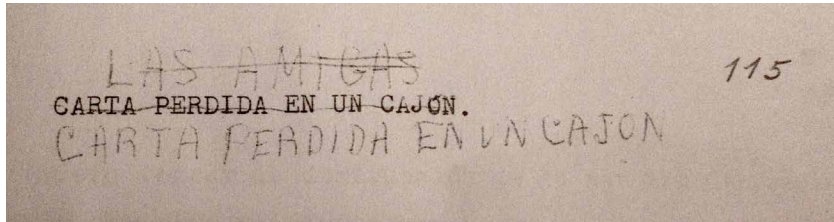 LAS AMIGAS
115
CARTA PERDIDA EN UN CAJON.
CARTA PERDIDA EN UN CAJON